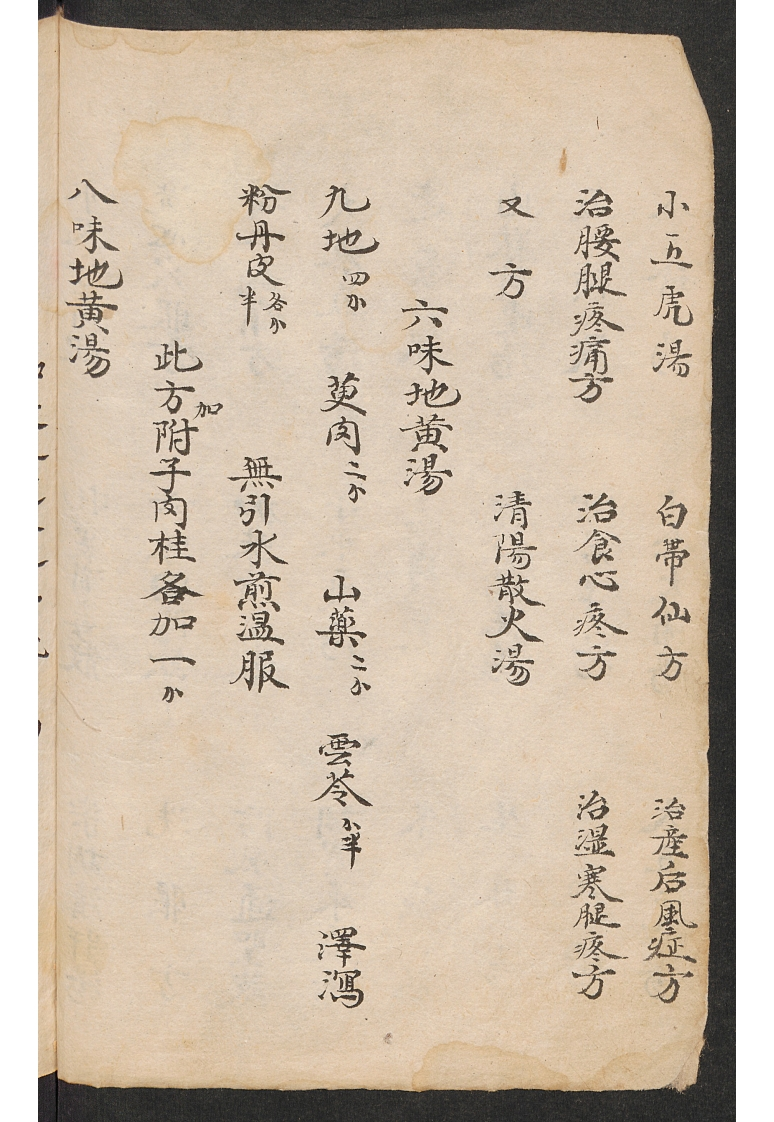 小五虎湯 白帶仙方 治產后風症方
治腰腿疼痛方 治食心疼方 治湿寒腿疼方
又方 清陽散火湯
六味地黄湯
九地四分 萸肉二分 山藥二分 雲苓分半 澤瀉
粉丹皮各分半 無引水煎温服
此方加附子肉桂各加一分
八味地黄湯